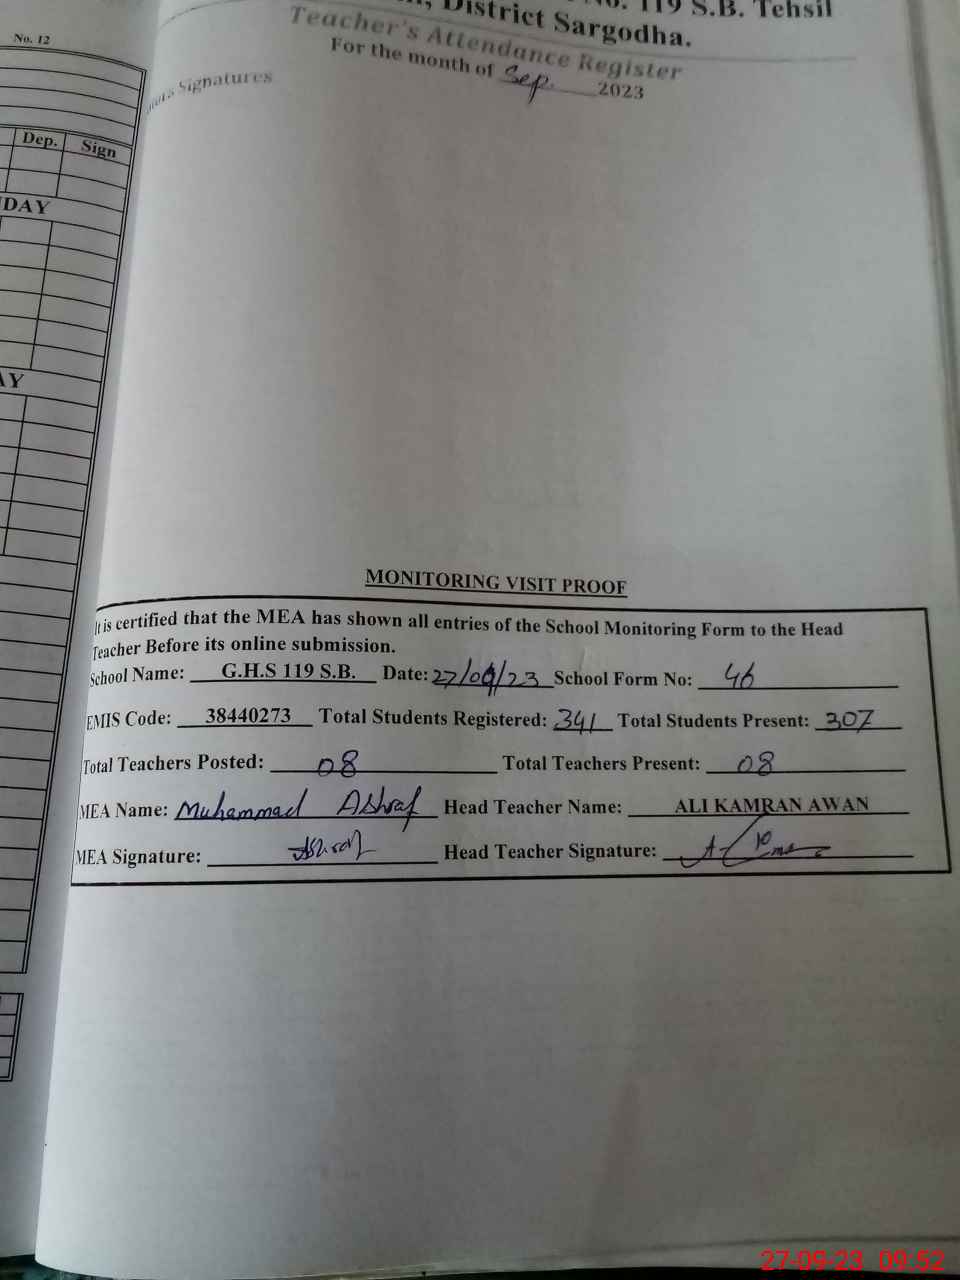 No. 12
Dep. Sign
DAY
AY
No. 119 S.B. Tehsil
District Sargodha.
Teacher's Attendance Register
For the month of Sep. 2023
Signatures
MONITORING VISIT PROOF
It is certified that the MEA has shown all entries of the School Monitoring Form to the Head
Teacher Before its online submission.
School Name: G.H.S 119 S.B. Date: 27/09/23 School Form No: 46
EMIS Code: 38440273 Total Students Registered: 341 Total Students Present: 307
Total Teachers Posted: 08 Total Teachers Present: 08
MEA Name: Muhammad Ashraf Head Teacher Name: ALI KAMRAN AWAN
MEA Signature: Ashraf Head Teacher Signature:
27-09-23 09:52